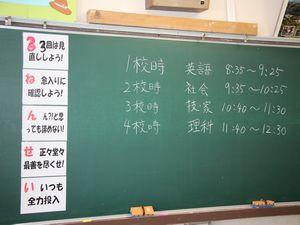 る 3回は見
直ししよう!
ね 念入りに
確認しよう!
ん ん?!と思
っても諦めない!
せ 正々堂々
最善を尽くせ!
い いつも
全力投入
1校時 英語 8:35~9:25
2校時 社会 9:35~10:25
3校時 技家 10:40~11:30
4校時 理科 11:40~12:30